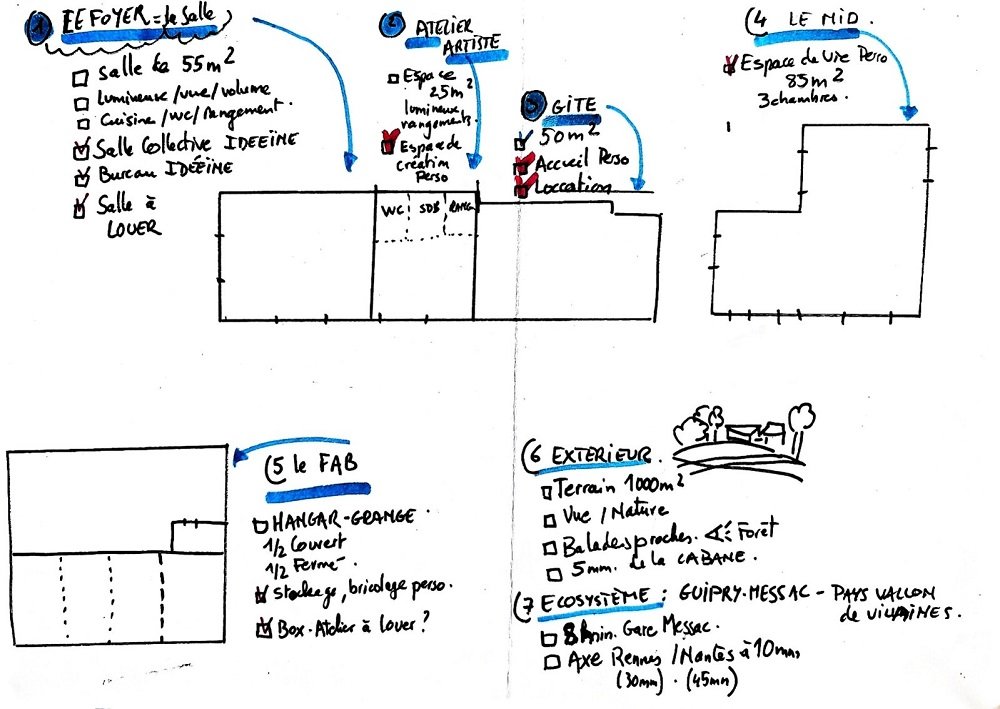 1 LE FOYER = la Salle
Salle de 55m²
lumineuse/vue/volume
Cuisine/WC/rangement.
Salle Collective IDEEÏNE
Bureau IDÉEÏNE
Salle à
LOUER
2 ATELIER
ARTISTE
Espace
25m²
lumineux
rangements.
Espace de
création
Perso
3 GITE
50m²
Accueil Perso
Loccation
(4 LE NID.
Espace de vie Perso
85m²
3 chambres.
WC SDB RANG
(5 le FAB
HANGAR-GRANGE.
1/2 Couvert
1/2 Fermé.
Stockage, bricolage perso.
Box-Atelier à louer?
(6 EXTERIEUR.
Terrain 1000m²
Vue/Nature
Balades proches. Forêt
5mn. de la CABANE.
(7 ECOSYSTÈME: GUIPRY-MESSAC - PAYS VALLON
de VILAINES.
8min. Gare Messac.
Axe Rennes/Nantes à 10mns
(30mn). (45mn)